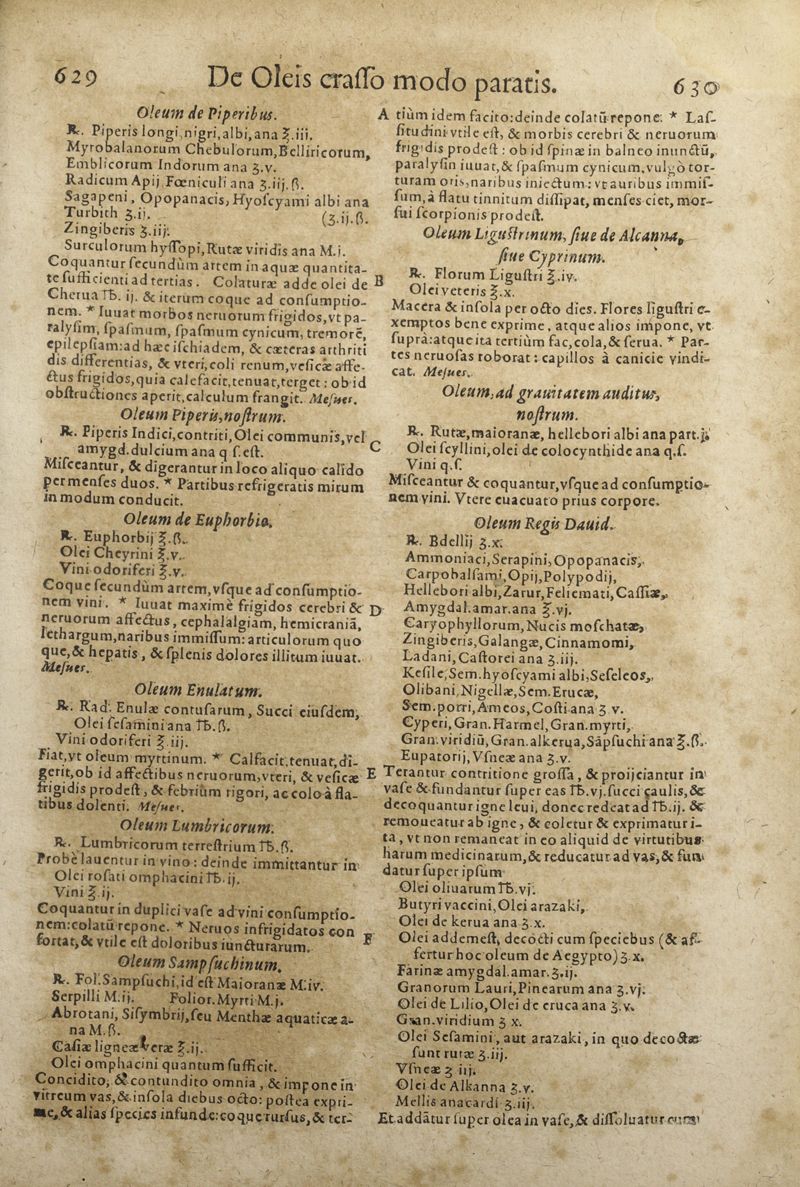 629
De Oleis crasso modo paratis.
630
Oleum de Piperibus.
℞. Piperis longi, nigri, albi, ana ℥.iii.
Myrobalanorum Chebulorum, Belliricorum,
Emblicorum Indorum ana ʒ.v.
Radicum Apij, Fœniculi ana ʒ.iij.ß.
Sagapeni, Opopanacis, Hyoscyami albi ana
Turbith ʒ.ij. (ʒ.ij.ß.
Zingiberis ʒ.iij.
Surculorum hyssopi, Rutæ viridis ana M.j.
Coquantur secundùm artem in aquæ quantita-
te sufficienti ad tertias. Colaturæ adde olei de
Cherua ℔. ij. & iterum coque ad consumptio-
nem. * Iuuat morbos neruorum frigidos, vt pa-
ralysim, spasmum, spasmum cynicum, tremorẽ,
epilepsiam: ad hæc ischiadem, & cæteras arthriti
dis differentias, & vteri, coli renum, vesicæ affe-
ctus frigidos, quia calefacit, tenuat, terget: ob id
obstructiones aperit, calculum frangit. Mesues.
Oleum Piperis, nostrum.
℞. Piperis Indici, contriti, Olei communis, vel
amygd. dulcium ana q s. est.
Misceantur, & digerantur in loco aliquo calido
per menses duos. * Partibus refrigeratis mirum
in modum conducit.
Oleum de Euphorbio.
℞. Euphorbij ℥.ß.
Olei Cheyrini ℥.v.
Vini odoriferi ℥.v.
Coque secundùm artem, vsque ad consumptio-
nem vini. * Iuuat maximè frigidos cerebri &
neruorum affectus, cephalalgiam, hemicraniã,
lethargum, naribus immissum: articulorum quo
que, & hepatis, & splenis dolores illitum iuuat.
Mesues.
Oleum Enulatum.
℞. Rad. Enulæ contusarum, Succi eiusdem,
Olei sesamini ana ℔.ß.
Vini odoriferi ℥ iij.
Fiat, vt oleum myrtinum. * Calfacit, tenuat, di-
gerit, ob id affectibus neruorum, vteri, & vesicæ
frigidis prodest, & febrium rigori, ac colo à fla-
tibus dolenti. Mesues.
Oleum Lumbricorum.
℞. Lumbricorum terrestrium ℔.ß.
Probè lauentur in vino: deinde immittantur in
Olei rosati omphacini ℔. ij.
Vini ℥.ij.
Coquantur in duplici vase ad vini consumptio-
nem: colatũ repone. * Neruos infrigidatos con
fortat, & vtile est doloribus iuncturarum.
Oleum Sampsuchinum.
℞. Fol. Sampsuchi, id est Maioranæ M.iv.
Serpilli M.ij. Folior. Myrti M.j.
Abrotani, Sisymbrij, seu Menthæ aquaticæ a-
na M.ß.
Casiæ ligneæ veræ ℥.ij.
Olei omphacini quantum sufficit.
Concidito, & contundito omnia, & impone in
vitreum vas, & insola diebus octo: postea expri-
me, & alias species infunde: coque rursus, & ter-
A tium idem facito: deinde colatũ repone. * Las-
situdini vtile est, & morbis cerebri & neruorum
frigidis prodest: ob id spinæ in balneo inunctũ,
paralysin iuuat, & spasmum cynicum, vulgò tor-
turam oris, naribus iniectum: vt auribus immis-
sum, à flatu tinnitum dissipat, menses ciet, mor-
sui scorpionis prodest.
Oleum Ligustrinum, siue de Alcanna,
siue Cyprinum.
℞. Florum Ligustri ℥.iv.
B
Olei veteris ℥.x.
Macera & insola per octo dies. Flores ligustri e-
xemptos bene exprime, atque alios impone, vt
suprà: atque ita tertiùm fac, cola, & serua. * Par-
tes neruosas roborat: capillos à canicie vindi-
cat. Mesues.
Oleum, ad grauitatem auditus,
nostrum.
℞. Rutæ, maioranæ, hellebori albi ana part. j.
C Olei scyllini, olei de colocynthide ana q.s.
Vini q.s.
Misceantur & coquantur, vsque ad consumptio-
nem vini. Vtere euacuato prius corpore.
Oleum Regis Dauid.
℞. Bdellij ʒ.x.
Ammoniaci, Serapini, Opopanacis,
Carpobalsami, Opij, Polypodij,
Hellebori albi, Zarur, Feliemati, Cassiæ,
D Amygdal. amar. ana ℥.vj.
Caryophyllorum, Nucis moschatæ,
Zingiberis, Galangæ, Cinnamomi,
Ladani, Castorei ana ʒ.iij.
Kesile, Sem. hyoscyami albi, Seseleos,
Olibani, Nigellæ, Sem. Erucæ,
Sem. porri, Ameos, Costi ana ʒ v.
Cyperi, Gran. Harmel, Gran. myrti,
Gran. viridiũ, Gran. alkerua, Sãpsuchi ana ℥.ß.
Eupatorij, Vsneæ ana ʒ.v.
E Terantur contritione grossa, & proijciantur in
vase & fundantur super eas ℔.vj. succi caulis, &
decoquantur igne leui, donec redeat ad ℔.ij. &
remoueatur ab igne, & coletur & exprimatur i-
ta, vt non remaneat in eo aliquid de virtutibus
harum medicinarum, & reducatur ad vas, & fun
datur super ipsum
Olei oliuarum ℔.vj.
Butyri vaccini, Olei arazaki,
Olei de kerua ana ʒ.x.
F Olei addemest, decocti cum speciebus (& af-
fertur hoc oleum de Aegypto) ʒ x.
Farinæ amygdal. amar. ʒ.ij.
Granorum Lauri, Pinearum ana ʒ.vj.
Olei de Lilio, Olei de eruca ana ʒ.v.
Gran. viridium ʒ x.
Olei Sesamini, aut arazaki, in quo decoctæ
sunt rutæ ʒ.iij.
Vsneæ ʒ iij.
Olei de Alkanna ʒ.v.
Mellis anacardi ʒ.iij.
Et addãtur super olea in vase, & dissoluatur cum